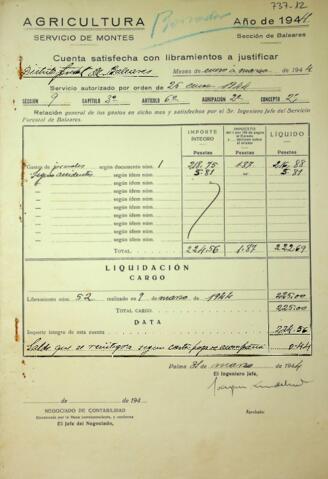 737.12
AGRICULTURA
Borrador
Año de 1944
SERVICIO DE MONTES
Sección de Baleares
Cuenta satisfecha con libramientos a justificar
Distrito Ftal de Baleares Meses de enero a marzo de 1944
Servicio autorizado por orden de 26 enero 1944
SECCIÓN CAPÍTULO 3º ARTÍCULO 6º AGRUPACIÓN 2º CONCEPTO 2º
Relación general de los gastos en dicho mes y satisfechos por el Sr. Ingeniero Jefe del Servicio
Forestal de Baleares.
IMPORTE ÍNTEGRO IMPUESTO LÍQUIDO
Pesetas Pesetas Pesetas
Gastos de jornales según documento núm. 1 218.75 1.87 216.88
Seguro accidentes según ídem núm. 5.81 5.81
según ídem núm.
según ídem núm.
según ídem núm.
según ídem núm.
según ídem núm.
según ídem núm.
TOTAL 224.56 1.87 222.69
LIQUIDACIÓN
CARGO
Libramiento núm. 52 realizado en 9 de marzo de 1944 225.00
TOTAL CARGO 225.00
DATA
Importe íntegro de esta cuenta 224.56
Saldo que se reintegra según carta pago se acompaña 0.44
Palma 31 de marzo de 1944
El Ingeniero Jefe,
de de 194
NEGOCIADO DE CONTABILIDAD
Aprobado:
El Jefe del Negociado,